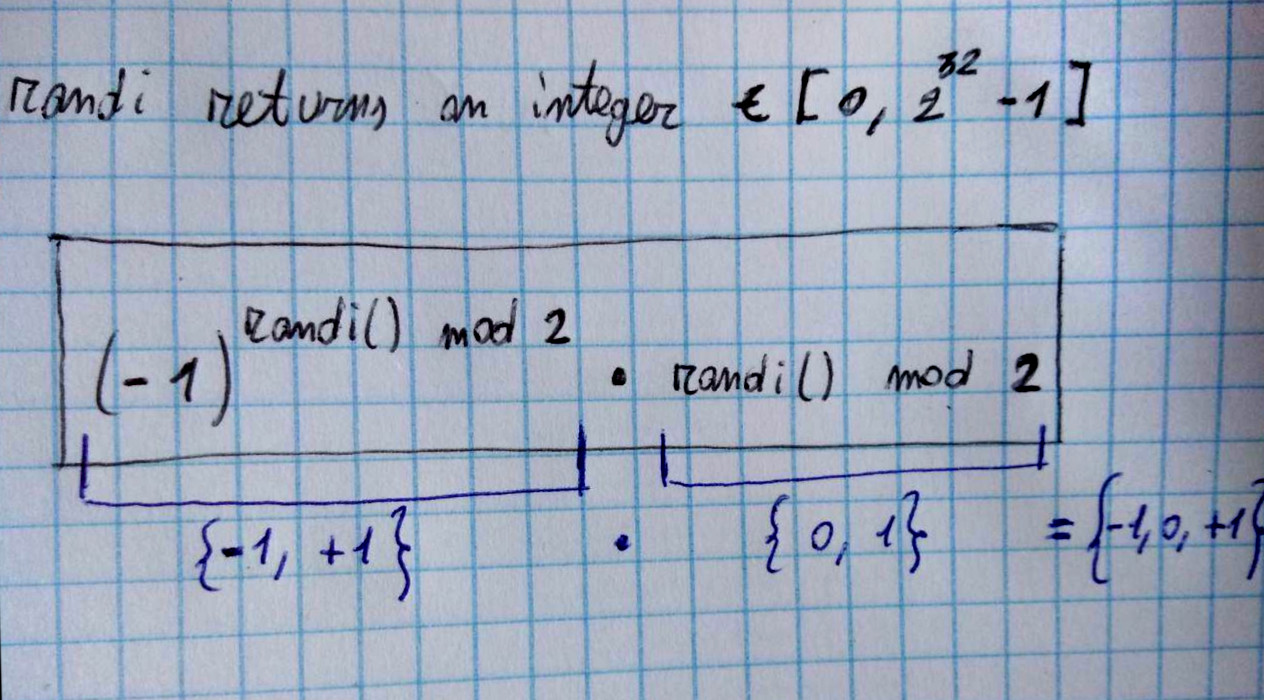 randi returns an integer ∈ [0, 2^32 - 1]
(-1)^randi() mod 2 · randi() mod 2
{-1, +1} · {0, 1} = {-1, 0, +1}